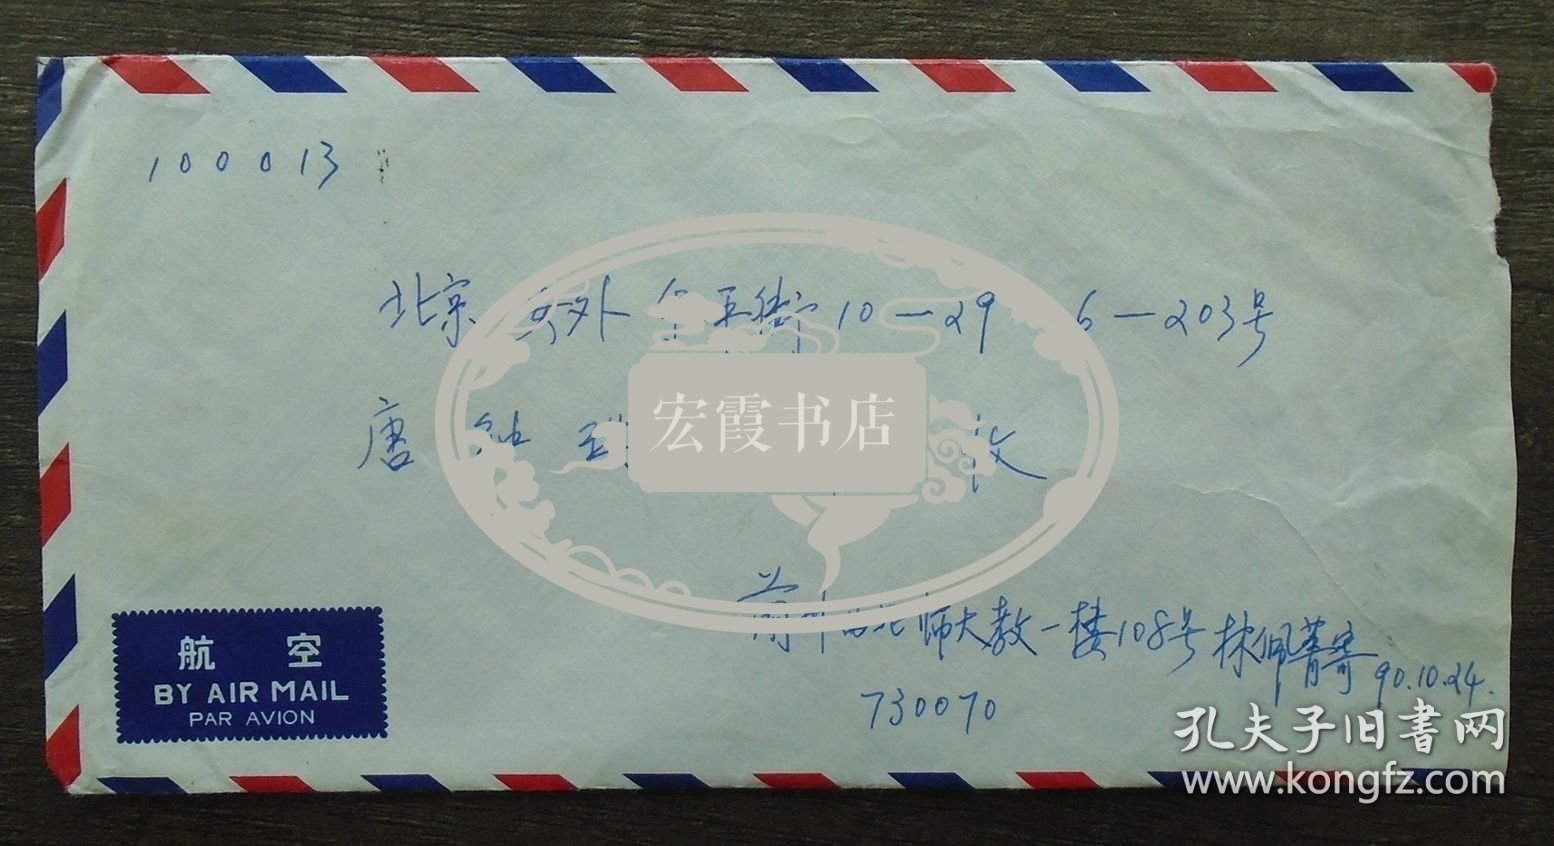 100013
北京 安外 平街10-29 6-203号
唐 收
宏霞书店
兰州西北师大教一楼108号 林佩菁寄 90.10.24.
730070
航 空
BY AIR MAIL
PAR AVION
孔夫子旧書网
www.kongfz.com